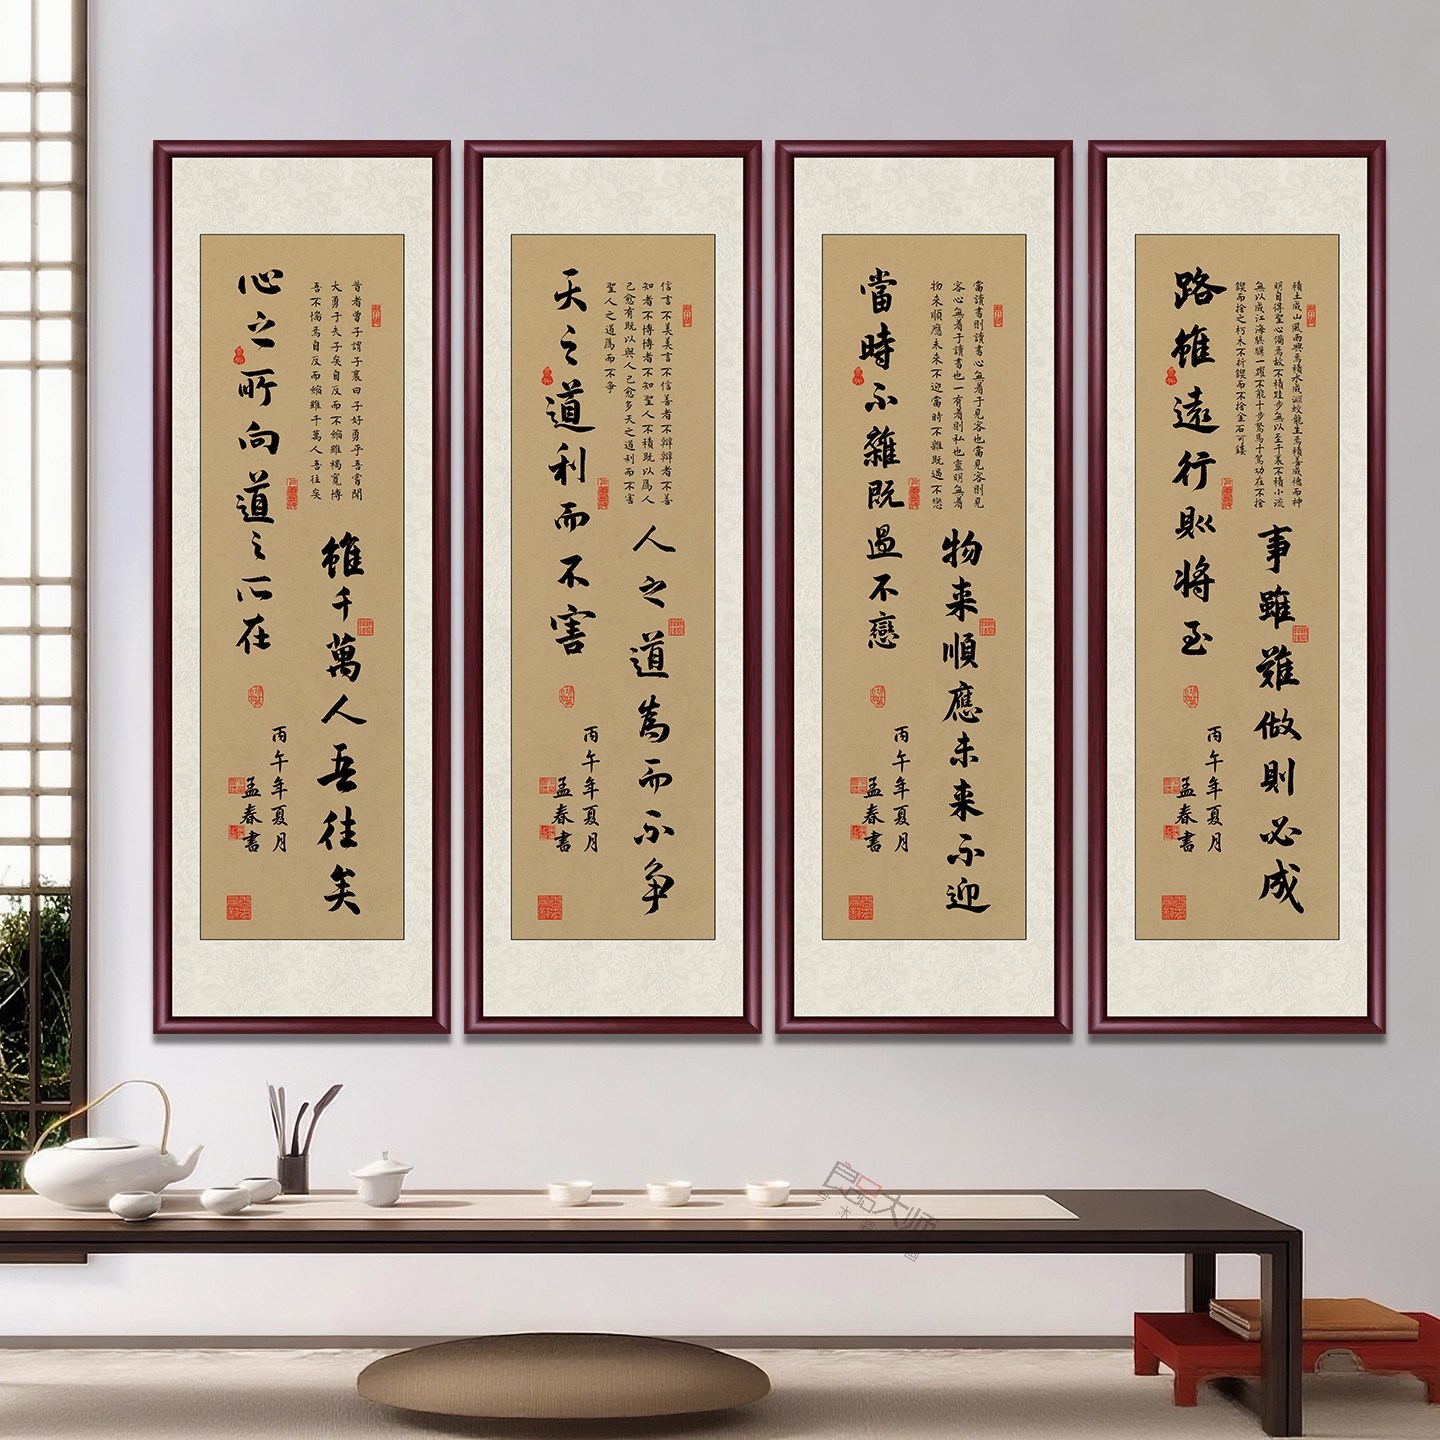 積土成山風雨興焉積水成淵蛟龍生焉積善成德而神
明自得聖心備焉故不積跬步無以至千裏不積小流
無以成江海騏驥一躍不能十步駑馬十駕功在不捨
鍥而捨之朽木不折鍥而不捨金石可鏤
事雖難做則必成
路雖遠行則將至
丙午年夏月
孟春書
當讀書則讀書心無着于見客也當見客則見
客心無着于讀書也一有着則私也靈明無着
物來順應未來不迎當時不雜既過不戀
物来順應未来不迎
當時不雜既過不戀
丙午年夏月
孟春書
信言不美美言不信善者不辯辯者不善
知者不博博者不知聖人不積既以爲人
己愈有既以與人己愈多天之道利而不害
聖人之道爲而不争
人之道為而不争
天之道利而不害
丙午年夏月
孟春書
昔者曾子謂子襄曰子好勇乎吾嘗聞
大勇于夫子矣自反而不縮雖褐寬博
吾不惴焉自反而縮雖千萬人吾往矣
雖千萬人吾往矣
心之所向道之所在
丙午年夏月
孟春書
良品大师